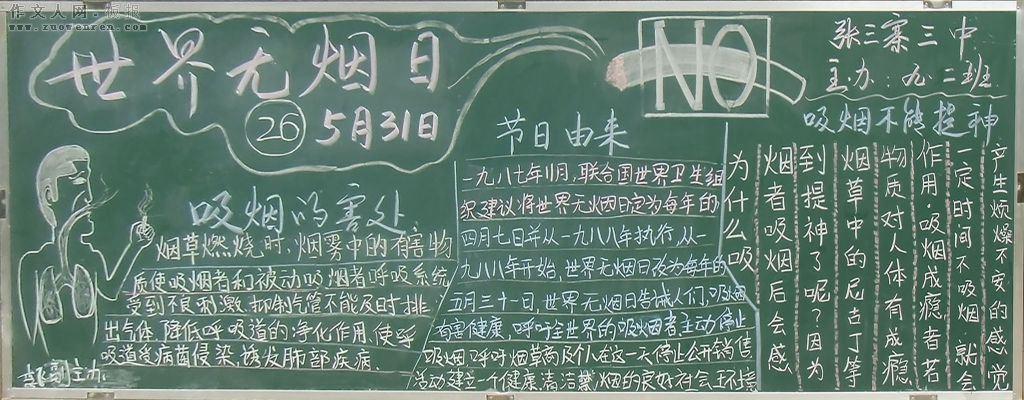 作文人网·板报
www.zuowenren.com
世界无烟日
26
5月31日
NO
张三寨三中
主办：九二班
吸烟的害处
烟草燃烧时，烟雾中的有害物
质使吸烟者和被动吸烟者呼吸系统
受到不良刺激，抑制气管不能及时排
出气体，降低呼吸道的净化作用，使呼
吸道受病菌侵染，诱发肺部疾病.
主办
节日由来
一九八七年11月，联合国世界卫生组
织建议将世界无烟日定为每年的
四月七日并从一九八八年执行，从一
九八八年开始，世界无烟日改为每年的
五月三十一日，世界无烟日告诫人们，吸烟
有害健康，呼吁全世界的吸烟者主动停止
吸烟，呼吁烟草商及个人在这一天停止公开销售
活动建立一个健康清洁禁烟的良好社会环境
吸烟不能提神
为什么吸
烟者吸烟后会感
到提神了呢？因为
烟草中的尼古丁等
物质对人体有成瘾
作用，吸烟成瘾者若
一定时间不吸烟就会
产生烦燥不安的感觉